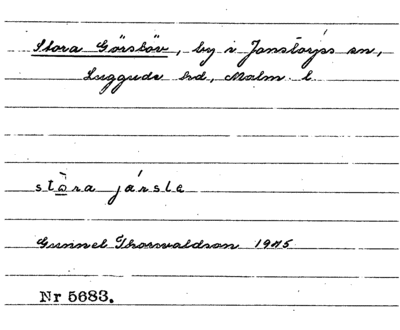 Stora Görslöv, by i Jonstorps sn,
Luggude hd, Malm. l.
stò̱ra jársle
Gunnel Thorwaldson 1945
Nr 5683.